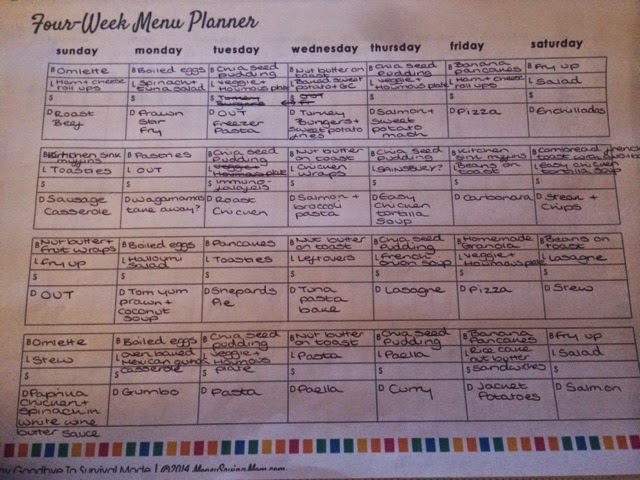 Four-Week Menu Planner
sunday monday tuesday wednesday thursday friday saturday
B Omlette
L Ham + cheese
roll ups
S
D Roast
Beef
B Boiled eggs
L Spinach +
tuna salad
S
D Prawn
Stir
Fry
B Chia seed
pudding
L veggie +
Houmous plate
S
D OUT
Freezer
Pasta
B Nut butter on
toast
L Baked sweet
potato + GC
S
D Turkey
Burgers +
sweet potato
fries
B Chia seed
Pudding
L veggie +
Houmous plate
S
D Salmon +
sweet
potato
mash
B Banana
pancakes
L Ham + cheese
roll ups
S
D Pizza
B Fry up
L Salad
S
D Enchilladas
B Kitchen sink
muffins
L Toasties
S
D Sausage
Casserole
B Pastries
L OUT
S
D Wagamamas
take away?
B Chia seed
Pudding
L veggie +
Houmous plate
S immuno-
D Roast
Chicken
B Nut butter
on toast
L Chicken
wraps
S
D Salmon +
broccoli
pasta
B Chia seed
Pudding
L SAINSBURY?
S
D Easy
chicken
tortilla
Soup
B Kitchen
sink muffins
L Beans on
toast
S
D Carbonara
B Cornbread french
toast with
L easy chicken
tortilla soup
S
D Steak +
Chips
B Nut butter +
fruit wraps
L Fry up
S
D OUT
B Boiled eggs
L Halloumi
salad
S
D Tom yum
prawn +
coconut
soup
B Pancakes
L Toasties
S
D Shepards
Pie
B Nut butter
on toast
L Leftovers
S
D Tuna
pasta
bake
B Chia seed
Pudding
L French
onion soup
S
D Lasagne
B Homemade
Granola
L veggie +
Houmous plate
S
D Pizza
B Beans on
toast
L Lasagne
S
D Stew
B Omlette
L Stew
S
D Paprika
Chicken +
Spinach in
white wine
butter sauce
B Boiled eggs
L oven baked
Mexican
S casserole
D Gumbo
B Chia seed
Pudding
L veggie +
Houmous
S plate
D Pasta
B Nut butter
on toast
L Pasta
S
D Paella
B Chia seed
Pudding
L Paella
S
D Curry
B Banana
Pancakes
L Rice cake
nut butter
S sandwiches
D Jacket
Potatoes
B Fry up
L Salad
S
D Salmon
Goodbye To Survival Mode | ©2014 MoneySavingMom.com